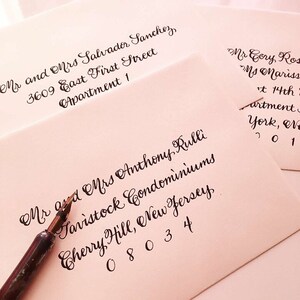 Mr. and Mrs Salvador Sanchez,
3609 East First Street
Apartment 1
Mr Cory, Ros
Ms Mariss
t 14th
partment
York, N
0 1
Mr and Mrs Anthony Rulli
Tavistock Condominiums
Cherry Hill, New Jersey,
0 8 0 3 4